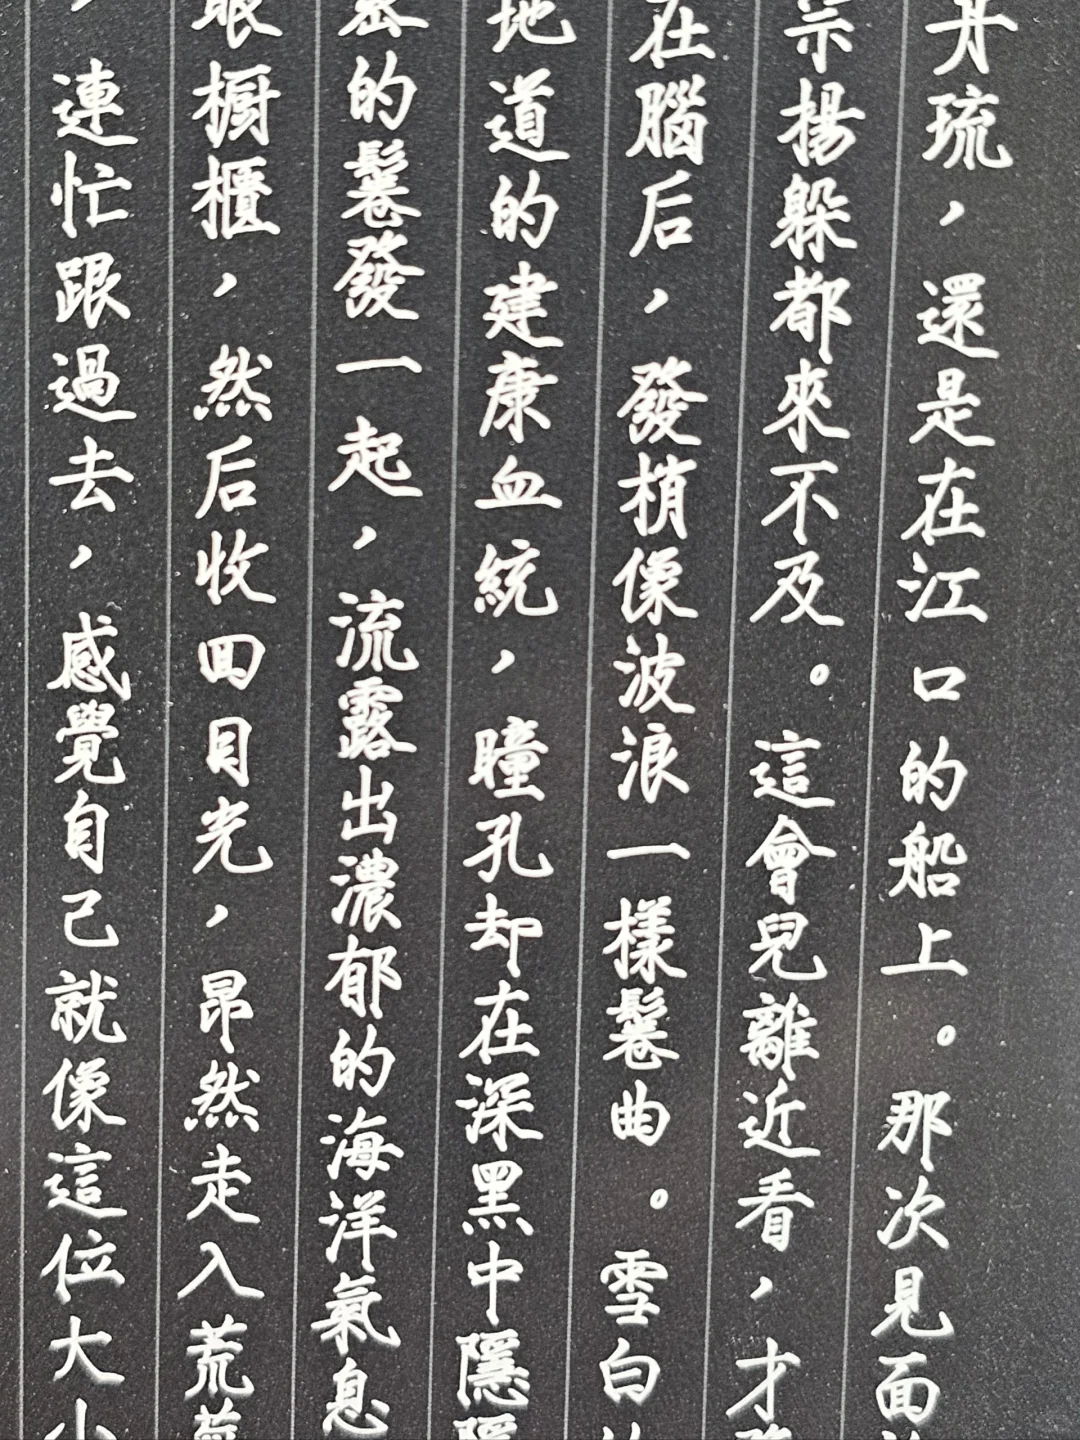 琉，還是在江口的船上。那次見面
宗揚躲都來不及。這會兒離近看，才
在腦后，發梢像波浪一樣鬈曲。雪白
地道的建康血統，瞳孔却在深黑中隱隱
密的鬈發一起，流露出濃郁的海洋氣息
眼櫥櫃，然后收回目光，昂然走入荒
，連忙跟過去，感覺自己就像這位大小